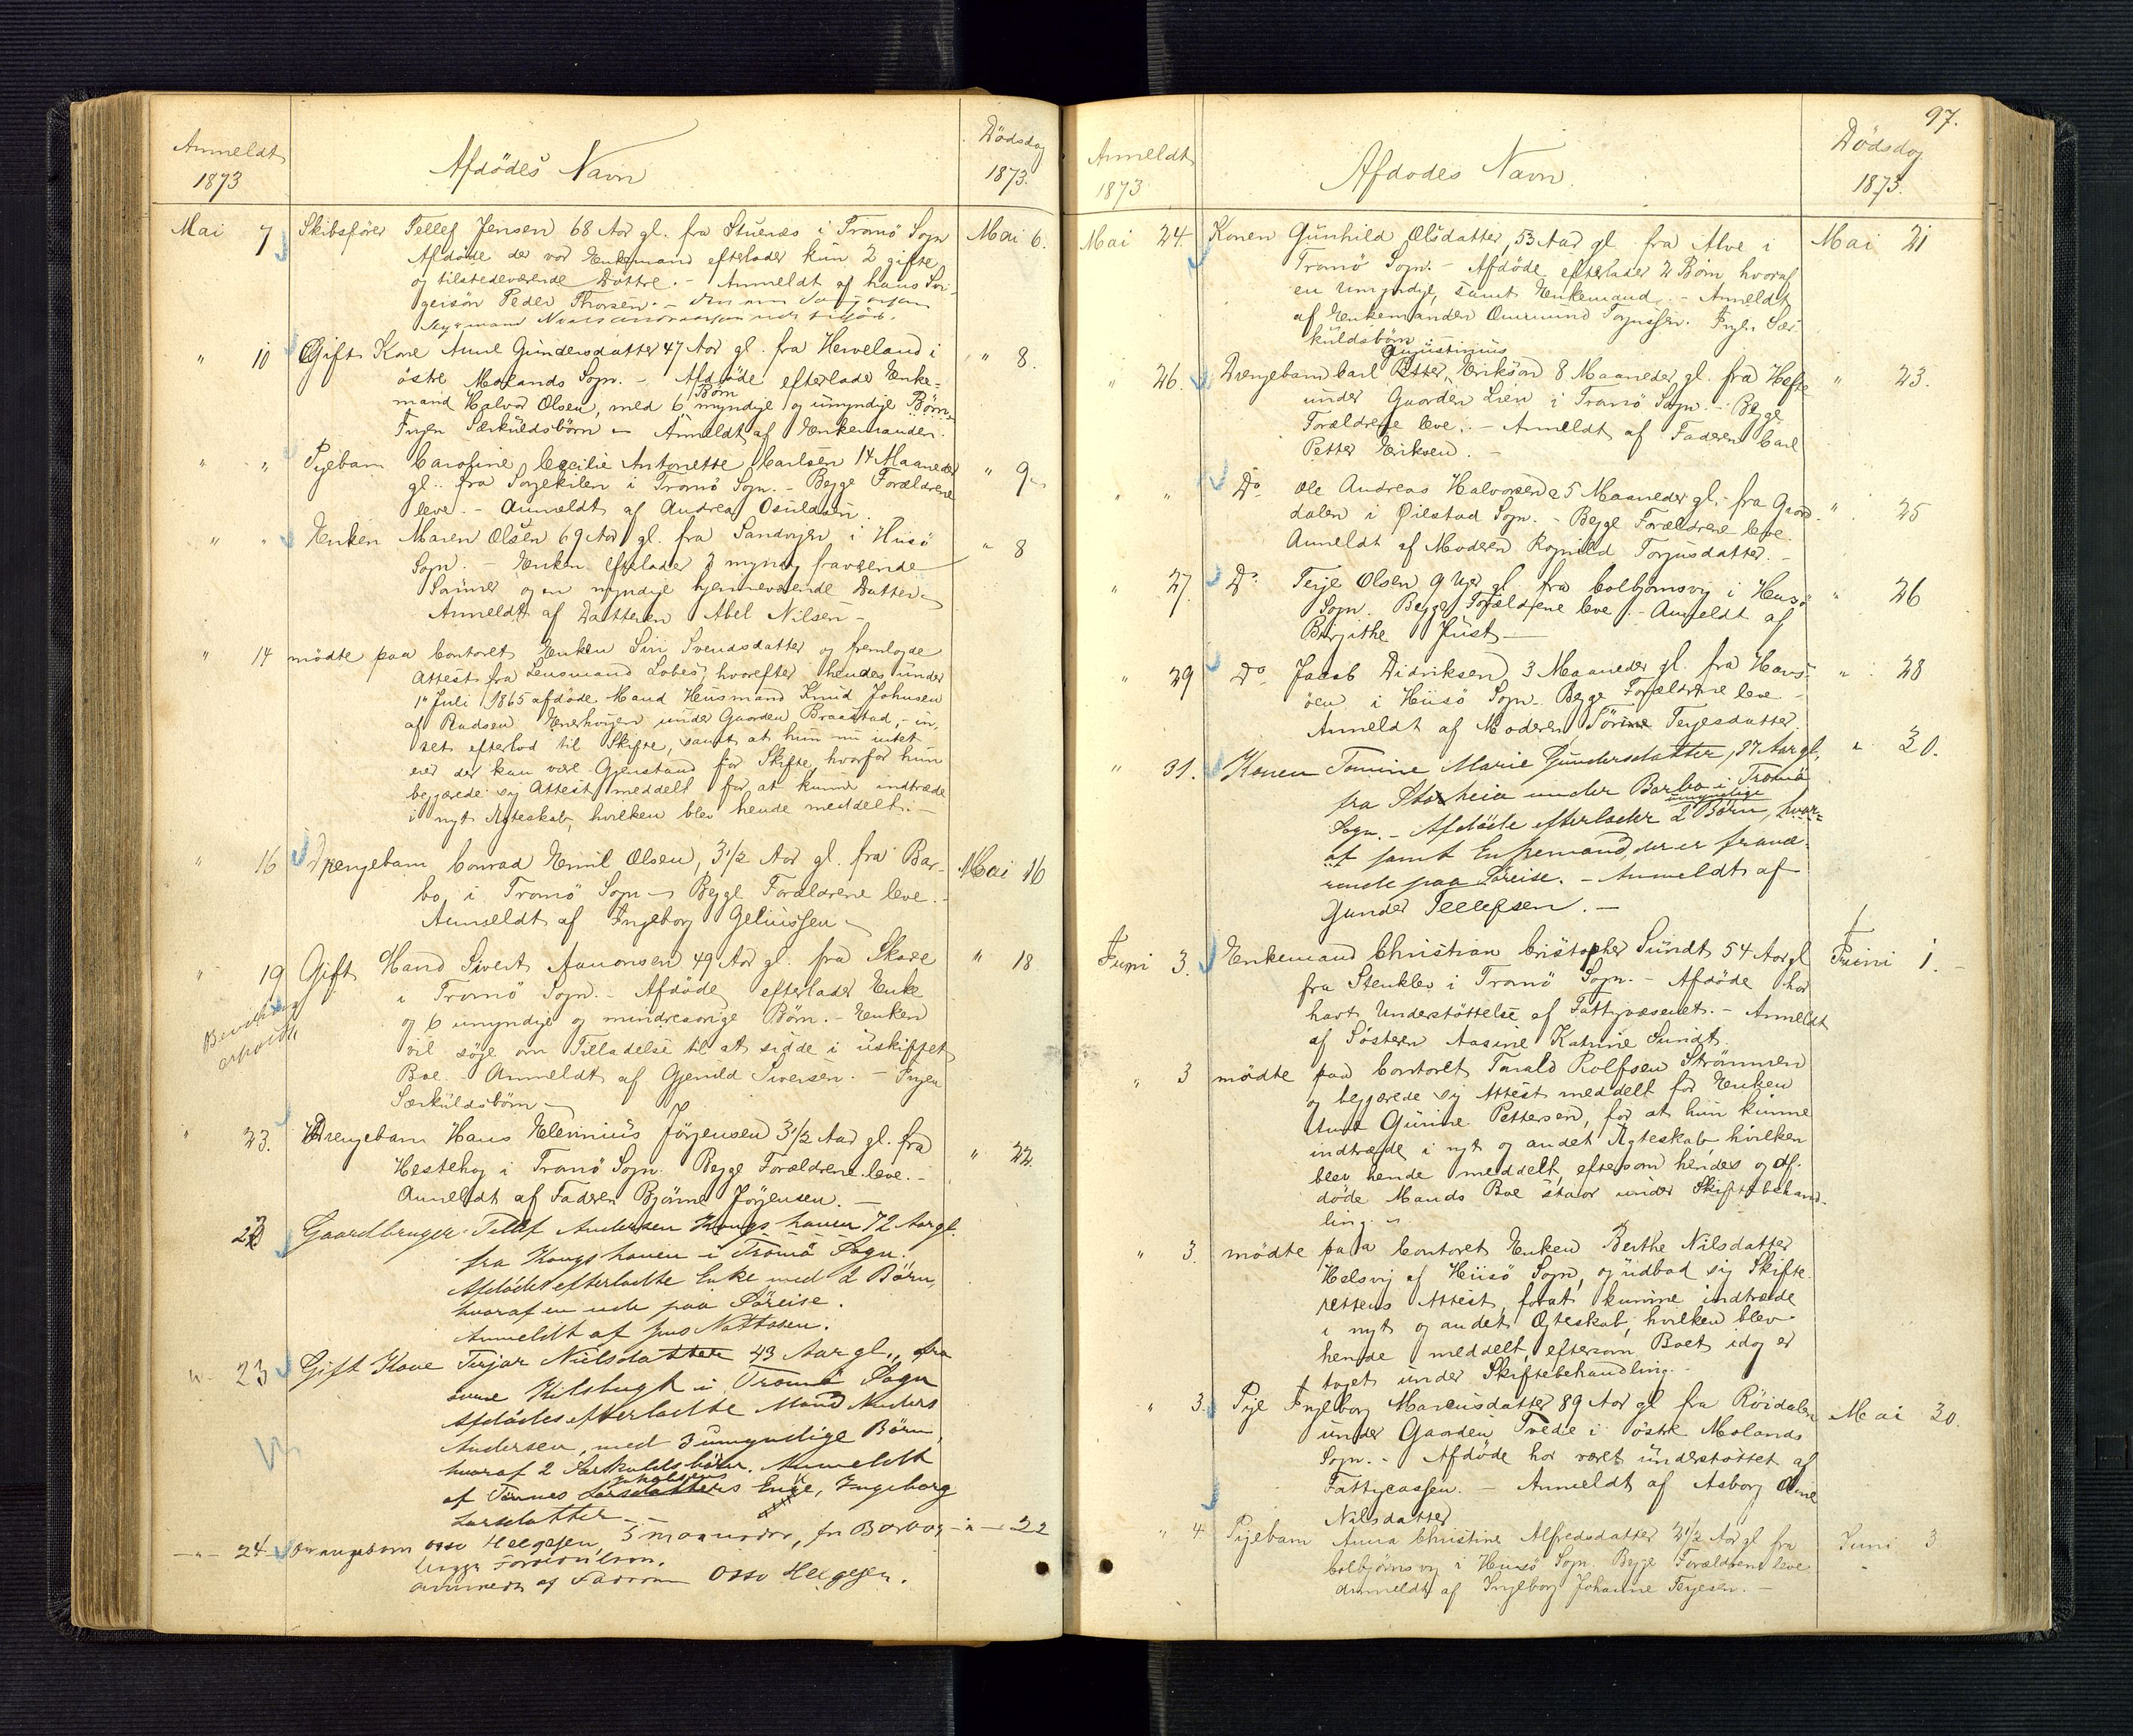 Anmeldt
1873
Afdödes Navn
Dödsdag
1873.
Mai 7 Skibsfører Tellef Jensen 68 Aar gl. fra Stuenæs i Tromö Sogn Mai 6.
Afdöde der var Enkemand efterlader kun 2 gifte
og tilstedeværende Döttre. - Anmeldt af hans Svi-
gersön Peder Thorsen. -
Styrmand
" 10 Gift Kone Anne Gundersdatter 47 Aar gl. fra Herveland i " 8.
östre Molands Sogn. - Afdöde efterlader Enke-
Börn
mand Halvor Olsen, med 6 myndige og umyndige Börn.
Ingen Særkuldsbörn - Anmeldt af Enkemanden.
" " Pigebarn Caroline Cecilie Antonette Carlsen 14 Maaneder " 9
gl. fra Songekilen i Tromö Sogn. - Begge Forældrene
leve. - Anmeldt af Andrea Osuldsen.
" " Enken Maren Olsen 69 Aar gl. fra Sandvigen i Hisö " 8
Sogn. - Enken efterlader 2 myndig fraværende
Sönner og en myndig hjemmeværende Datter
Anmeldt af Datteren Abel Nilsen -
" 14 mödte paa Contoret Enken Siri Svendsdatter og fremlagde
Attest fra Lensmand Lobes, hvorefter hendes under
1ste Juli 1865 afdöde Mand Husmand Knud Johnsen
af Rudsen Enerhougen under Gaarden Braastad, in-
tet efterlod til Skifte, samt at hun nu intet
eier der kan være Gjenstand for Skifte, hvorfor hun
begjærede sig Attest meddelt for at kunne indtræde
i nyt Ægteskab, hvilken blev hende meddelt. -
" 16 Drengebarn Conrad Emil Olsen, 3 1/2 Aar gl. fra Bar- Mai 16
bo i Tromö Sogn - Begge Forældrene leve. -
Anmeldt af Ingeborg Geliussen
" 19 Gift Mand Sivert Aanonsen 49 Aar gl. fra Skare " 18
i Tromö Sogn. - Afdöde efterlader Enke
og 6 umyndige og mindreaarige Börn. - Enken
vil söge om Tilladelse til at sidde i uskiftet
Boe. Anmeldt af Gjeruld Siversen. - Ingen
Særkuldsbörn -
" 23. Drengebarn Hans Elevinius Jörgensen 3 1/2 Aar gl. fra " 22.
Hestehag i Tromö Sogn. Begge Forældrene leve. -
Anmeldt af Faderen Bjärne Jörgensen. -
23 Gaardbruger Tellef Andersen Kongshavn 72 Aar gl.
fra Kongshavn i Tromö Sogn.
Afdöde efterladte Enke med 2 Börn,
hvoraf en ude paa Söreise.
Anmeldt af Jens Nattosen.
" 23 Gift Kone Terjar Nielsdatter 43 Aar gl., fra
Kilsbugt i Tromö Sogn
Afdödes efterladte Mand Anders
Andersen, med 3 umyndige Börn,
hvoraf 2 Særkuldsbörn. Anmeldt
af Tönnes Enke, Ingeborg
Larsdatter -
" 24 Drengebarn Osse Helgesen, 5 maaneder, fra Barbo - " 22
begge Forældre leve.
anmeldt af Faderen Osse Helgesen.
97.
Anmeldt
1873
Afdödes Navn
Dödsdag
1873.
Mai 24. Konen Gunhild Olsdatter, 53 Aar gl. fra Alve i Mai 21
Tromö Sogn. - Afdöde efterlader 2 Börn hvoraf
en umyndig, samt Enkemand. - Anmeldt
af Enkemanden Ommund Torjussen. Ingen Sær-
kuldsbörn
Gujustinius
" 26. Drengebarn Carl Petter Erikson 8 Maaneder gl. fra Hefte " 23.
under Gaarden Lien i Tromö Sogn. - Begge
Forældrene leve. - Anmeldt af Faderen Carl
Petter Eriksen. -
" " Do Ole Andreas Halvorsen 5 Maaneder gl. fra Grøn- " 25
dalen i Öiestad Sogn. - Begge Forældrene leve.
Anmeldt af Moderen Ragnild Torjusdatter. -
" 27. Do Terje Olsen 9 Uger gl. fra Colbjornsvig i Hisö " 26
Sogn. Begge Forældrene leve. - Anmeldt af
Birgithe Just -
" 29 Do Jacob Didriksen 3 Maaneder gl. fra Havs- " 28
öen i Hisö Sogn. Begge Forældrene leve. -
Anmeldt af Moderen Sörine Terjesdatter.
" 31. Konen Tomine Marie Gundersdatter, 27 Aar gl. " 30.
fra Storheia under Barbo i Tromö
umyndige
Sogn. - Afdöde efterlader 2 Börn, hvor-
af samt Enkemand, der er fravæ-
rende paa Söreise. - Anmeldt af
Gunder Tellefsen. -
Juni 3. Enkemand Christian Cristopher Sundt 54 Aar gl Juni 1. -
fra Stenklev i Tromö Sogn. - Afdöde har
havt Understöttelse af Fattigvæsenet. - Anmeldt
af Söstren Aasine Katrine Sundt.
" 3 mödte paa Contoret Tarald Rolfsen Strömmen
og begjærede sig Attest meddelt for Enken
Anne Gurine Pettersen, for at hun kunne
indtræde i nyt og andet Ægteskab hvilken
blev hende meddelt, eftersom hendes og af-
döde Mands Boe staar under Skiftebehand-
ling. -
" 3. mödte paa Contoret Enken Berthe Nilsdatter
Helsvig af Hisö Sogn, og udbad sig Skifte-
rettens Attest, forat kunne indtræde
i nyt og andet Ægteskab, hvilken blev
hende meddelt, eftersom Boet idag er
taget under Skiftebehandling. -
" 3. Pige Ingeborg Marcusdatter 89 Aar gl fra Röidalen Mai 30.
under Gaarden Tvede i östre Molands
Sogn. - Afdöde har været understöttet af
Fattigcassen. - Anmeldt af Asborg Oline
Nilsdatter
" 4. Pigebarn Anna Christine Alfredsdatter 2 1/2 Aar gl fra Juni 3
Colbjörnsvig i Hisö Sogn. Begge Forældrene leve
Anmeldt af Ingeborg Johanne Terjesen. -